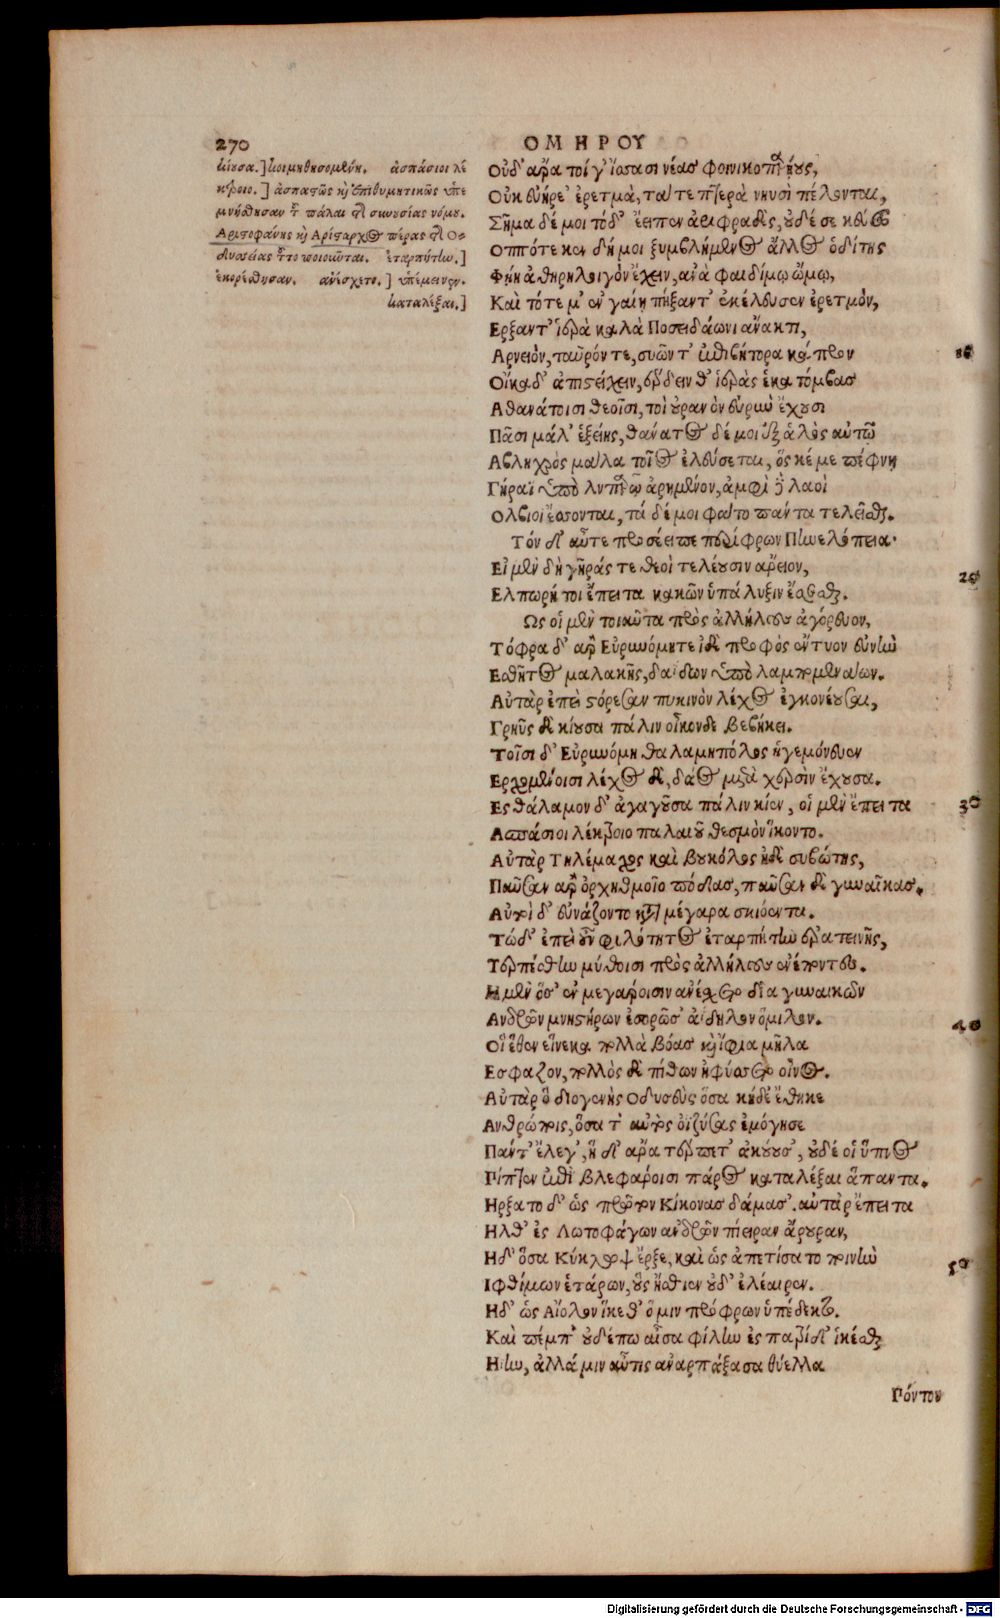 270
ΟΜΗΡΟΥ
κίουσα.] κοιμηθησομένη. ἀσπάσιοι λέ
κτροιο.] ἀσπαστῶς καὶ ἐπιθυμητικῶς ὑπε
μνήσθησαν τοῦ πάλαι τῆς συνουσίας νόμου.
Αριστοφάνης καὶ Αρίσταρχος πέρας τῆς Ο-
δυσσείας τοῦτο ποιοῦνται. ἐταρπήτην.]
ἐκορέσθησαν. ἀνέσχετο.] ὑπέμεινεν.
καταλέξαι.]
Οὐδ' ἄρα τοί γ' ἴσασι νέας φοινικοπαρήους,
Οὐκ εὐήρε' ἐρετμὰ, τά τε πτερὰ νηυσὶ πέλονται,
Σῆμα δέ μοι τόδ' ἔειπεν ἀριφραδὲς, οὐδέ σε κεύσω
Οππότε κεν δή μοι ξυμβλήμενος ἄλλος ὁδίτης
Φήῃ ἀθηρηλοιγὸν ἔχειν, ἀνὰ φαιδίμῳ ὤμῳ,
Καὶ τότε μ' ἐν γαίῃ πήξαντ' ἐκέλευσεν ἐρετμὸν,
Ερξαντ' ἱερὰ καλὰ Ποσειδάωνι ἄνακτι,
Αρνειὸν, ταῦρόν τε, συῶν τ' ἐπιβήτορα κάπρον
Οἴκαδ' ἀποστείχειν, ἔρδειν θ' ἱερὰς ἑκατόμβας
Αθανάτοισι θεοῖσι, τοὶ οὐρανὸν εὐρὺν ἔχουσι
Πᾶσι μάλ' ἑξείης, θάνατος δέ μοι ἐξ ἁλὸς αὐτῷ
Αβληχρὸς μάλα τοῖος ἐλεύσεται, ὅς κέ με πέφνῃ
Γήραϊ ὑπὸ λιπαρῷ ἀρημένον, ἀμφὶ δὲ λαοὶ
Ολβιοι ἔσονται, τὰ δέ μοι φάτο πάντα τελεῖσθαι.
Τόν δ' αὖτε προσέειπε περίφρων Πηνελόπεια·
Εἰ μὲν δὴ γῆράς τε θεοὶ τελέουσιν ἄρειον,
Ελπωρή τοι ἔπειτα κακῶν ὑπάλυξιν ἔσεσθαι.
Ως οἱ μὲν τοιαῦτα πρὸς ἀλλήλους ἀγόρευον,
Τόφρα δ' ἄρ' Εὐρυνόμητε ἰδὲ τροφὸς ἔντυον εὐνὴν
Εσθῆτος μαλακῆς, δαΐδων ὑπὸ λαμπομενάων.
Αὐτὰρ ἐπεὶ στόρεσαν πυκινὸν λέχος ἐγκονέουσαι,
Γρηῦς δὲ κίουσα πάλιν οἶκονδε βεβήκει.
Τοῖσι δ' Εὐρυνόμη θαλαμηπόλος ἡγεμόνευεν
Ερχομένοισι λέχος δὲ, δάος μετὰ χερσὶν ἔχουσα.
Ες θάλαμον δ' ἀγαγοῦσα πάλιν κίεν, οἱ μὲν ἔπειτα
Ασπάσιοι λέκτροιο παλαιοῦ θεσμὸν ἵκοντο.
Αὐτὰρ Τηλέμαχος καὶ βουκόλος ἠδὲ συβώτης,
Παῦσαν ἄρ' ὀρχηθμοῖο πόδας, παῦσαν δὲ γυναῖκας.
Αὐτοὶ δ' εὐνάζοντο κατὰ μέγαρα σκιόεντα.
Τώδ' ἐπεὶ οὖν φιλότητος ἐταρπήτην ἐρατεινῆς,
Τερπέσθην μύθοισι πρὸς ἀλλήλους ἐνέποντες.
Η μὲν ὅσ' ἐν μεγάροισιν ἀνέσχετο δῖα γυναικῶν
Ανδρῶν μνηστήρων ἐσορῶσ' ἀΐδηλον ὅμιλον.
Οἳ ἕθεν εἵνεκα πολλὰ βόας καὶ ἴφια μῆλα
Εσφαζον, πολλὸς δὲ πίθων ἠφύσσετο οἶνος.
Αὐτὰρ ὁ διογενὴς Οδυσεὺς ὅσα κήδε' ἔθηκε
Ανθρώποις, ὅσα τ' αὐτὸς ὀϊζύσας ἐμόγησε
Πάντ' ἔλεγ', ἣ δ' ἄρα τέρπετ' ἀκούουσ', οὐδέ οἱ ὕπνος
Πίπτεν ἐπὶ βλεφάροισι πάρος καταλέξαι ἅπαντα.
Ηρξατο δ' ὡς πρῶτον Κίκονας δάμασ', αὐτὰρ ἔπειτα
Ηλθ' ἐς Λωτοφάγων ἀνδρῶν πίειραν ἄρουραν,
Ηδ' ὅσα Κύκλωψ ἔρξε, καὶ ὡς ἀπετίσατο ποινὴν
Ιφθίμων ἑτάρων, οὓς ἤσθιεν οὐδ' ἐλέαιρεν.
Ηδ' ὡς Αἴολον ἵκεθ' ὅ μιν πρόφρων ὑπέδεκτο.
Καὶ πέμπ' οὐδέπω αἶσα φίλην ἐς πατρίδ' ἱκέσθαι
Ηην, ἀλλά μιν αὖτις ἀναρπάξασα θύελλα
Πόντον
20
30
40
50
Digitalisierung gefördert durch die Deutsche Forschungsgemeinschaft - DFG